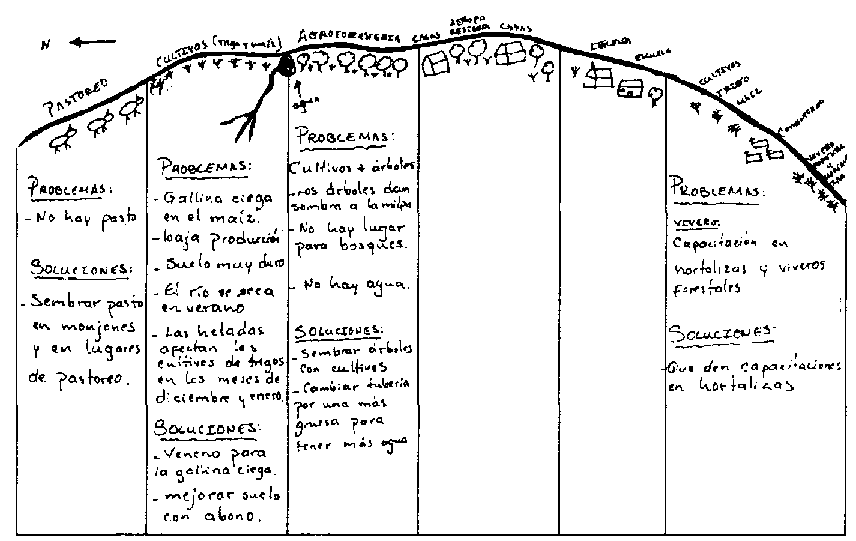 N
PASTOREO
CULTIVOS (Trigo y maíz)
AGROFORESTERIA
CASAS
CASAS
ESCUELA
CULTIVOS
TRIGO
agua
PROBLEMAS:
- No hay pasto
SOLUCIONES:
- Sembrar pasto
en monjones
y en lugares
de pastoreo.
PROBLEMAS:
- Gallina ciega
en el maíz.
- baja producción
- Suelo muy duro
- El río se seca
en verano
- Las heladas
afectan los
cultivos de trigos
en los meses de
diciembre y enero.
SOLUCIONES:
- Veneno para
la gallina ciega.
- mejorar suelo
con abono.
PROBLEMAS:
Cultivos + árboles
- Los árboles dan
sombra a la milpa
- No hay lugar
para bosques.
- No hay agua.
SOLUCIONES:
- Sembrar árboles
con cultivos
- Cambiar tubería
por una más
gruesa para
tener más agua
PROBLEMAS:
VIVERO:
Capacitación en
hortalizas y viveros
forestales
SOLUCIONES:
- Que den capacitaciones
en hortalizas